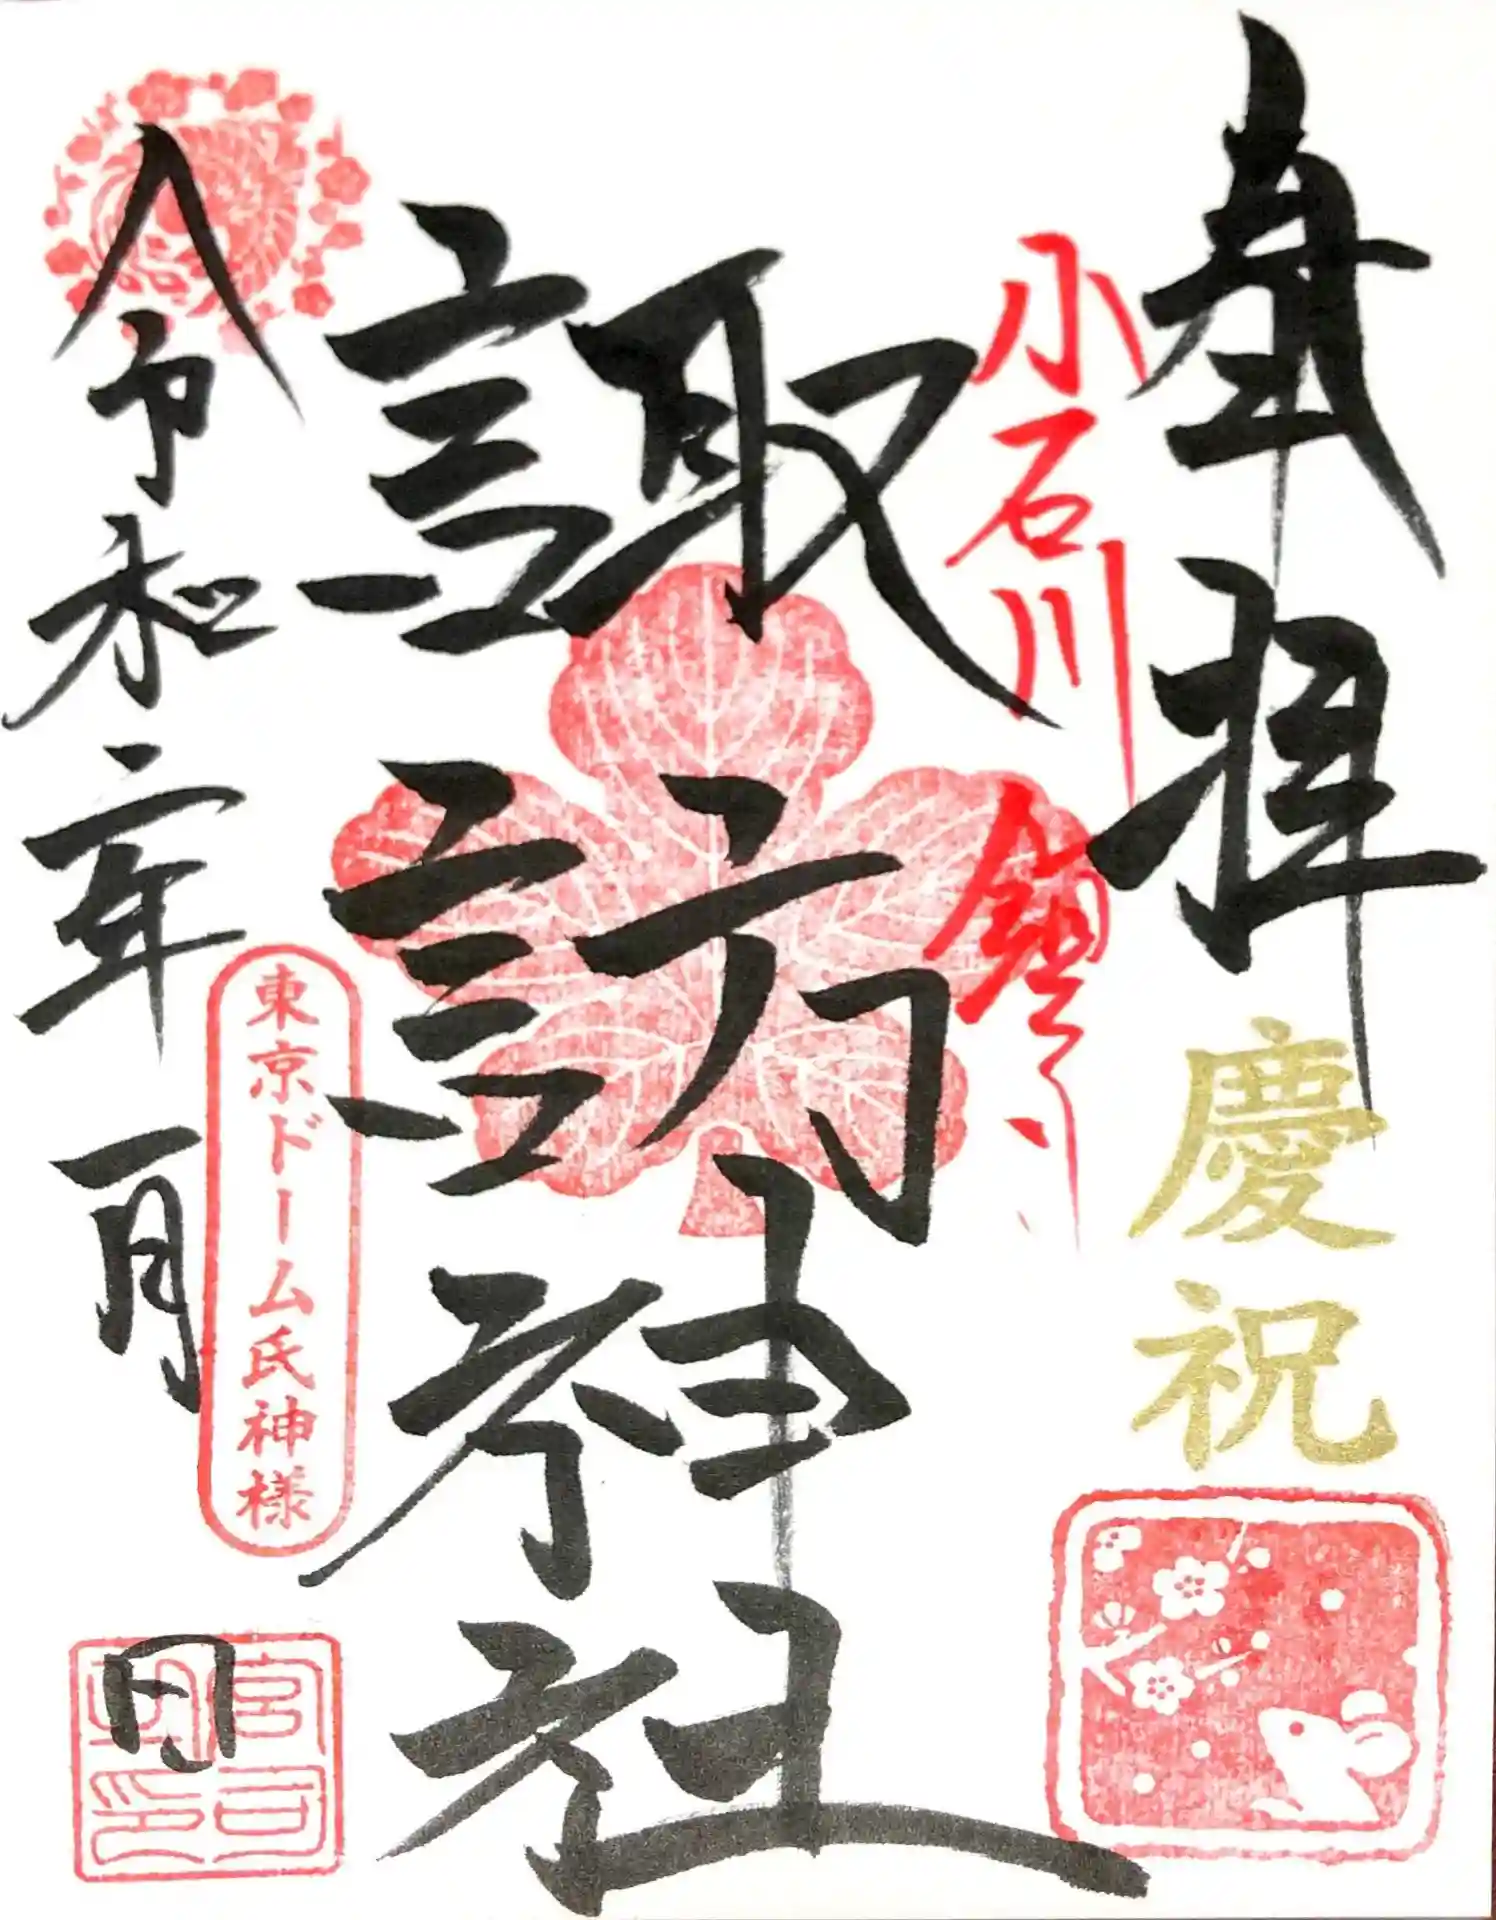 奉拝
慶祝
小石川鎮守
諏訪神社
令和二年一月
日
東京ドーム氏神様
宮司之印